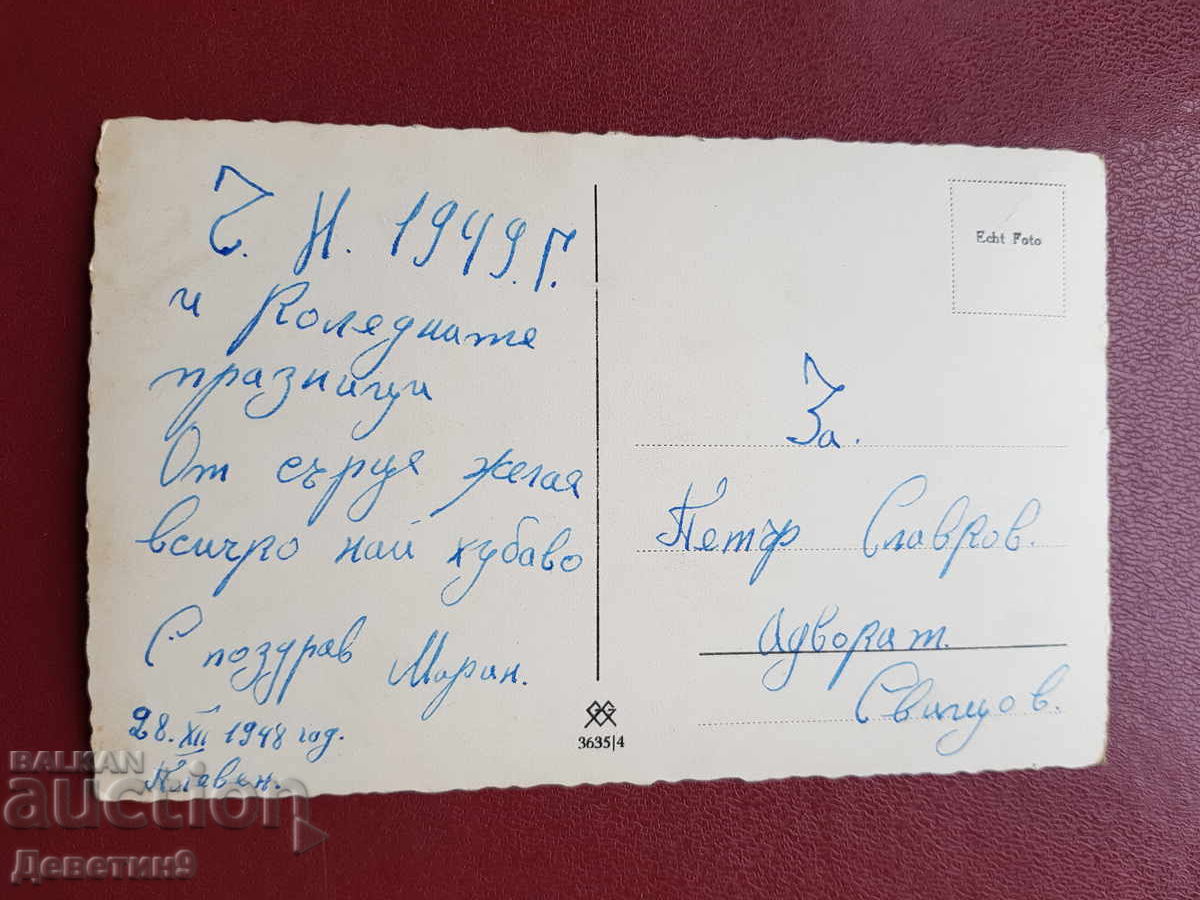 Ч. Н. 1949.Г.
и Коледната
празници
От сърця желая
всичко най хубаво
С поздрав Марин.
28.XII 1948 год.
Плевен.
Echt Foto
За.
Петър Славков.
Адвокат.
Свищов.
3635|4
BALKAN
auction
Деветин9